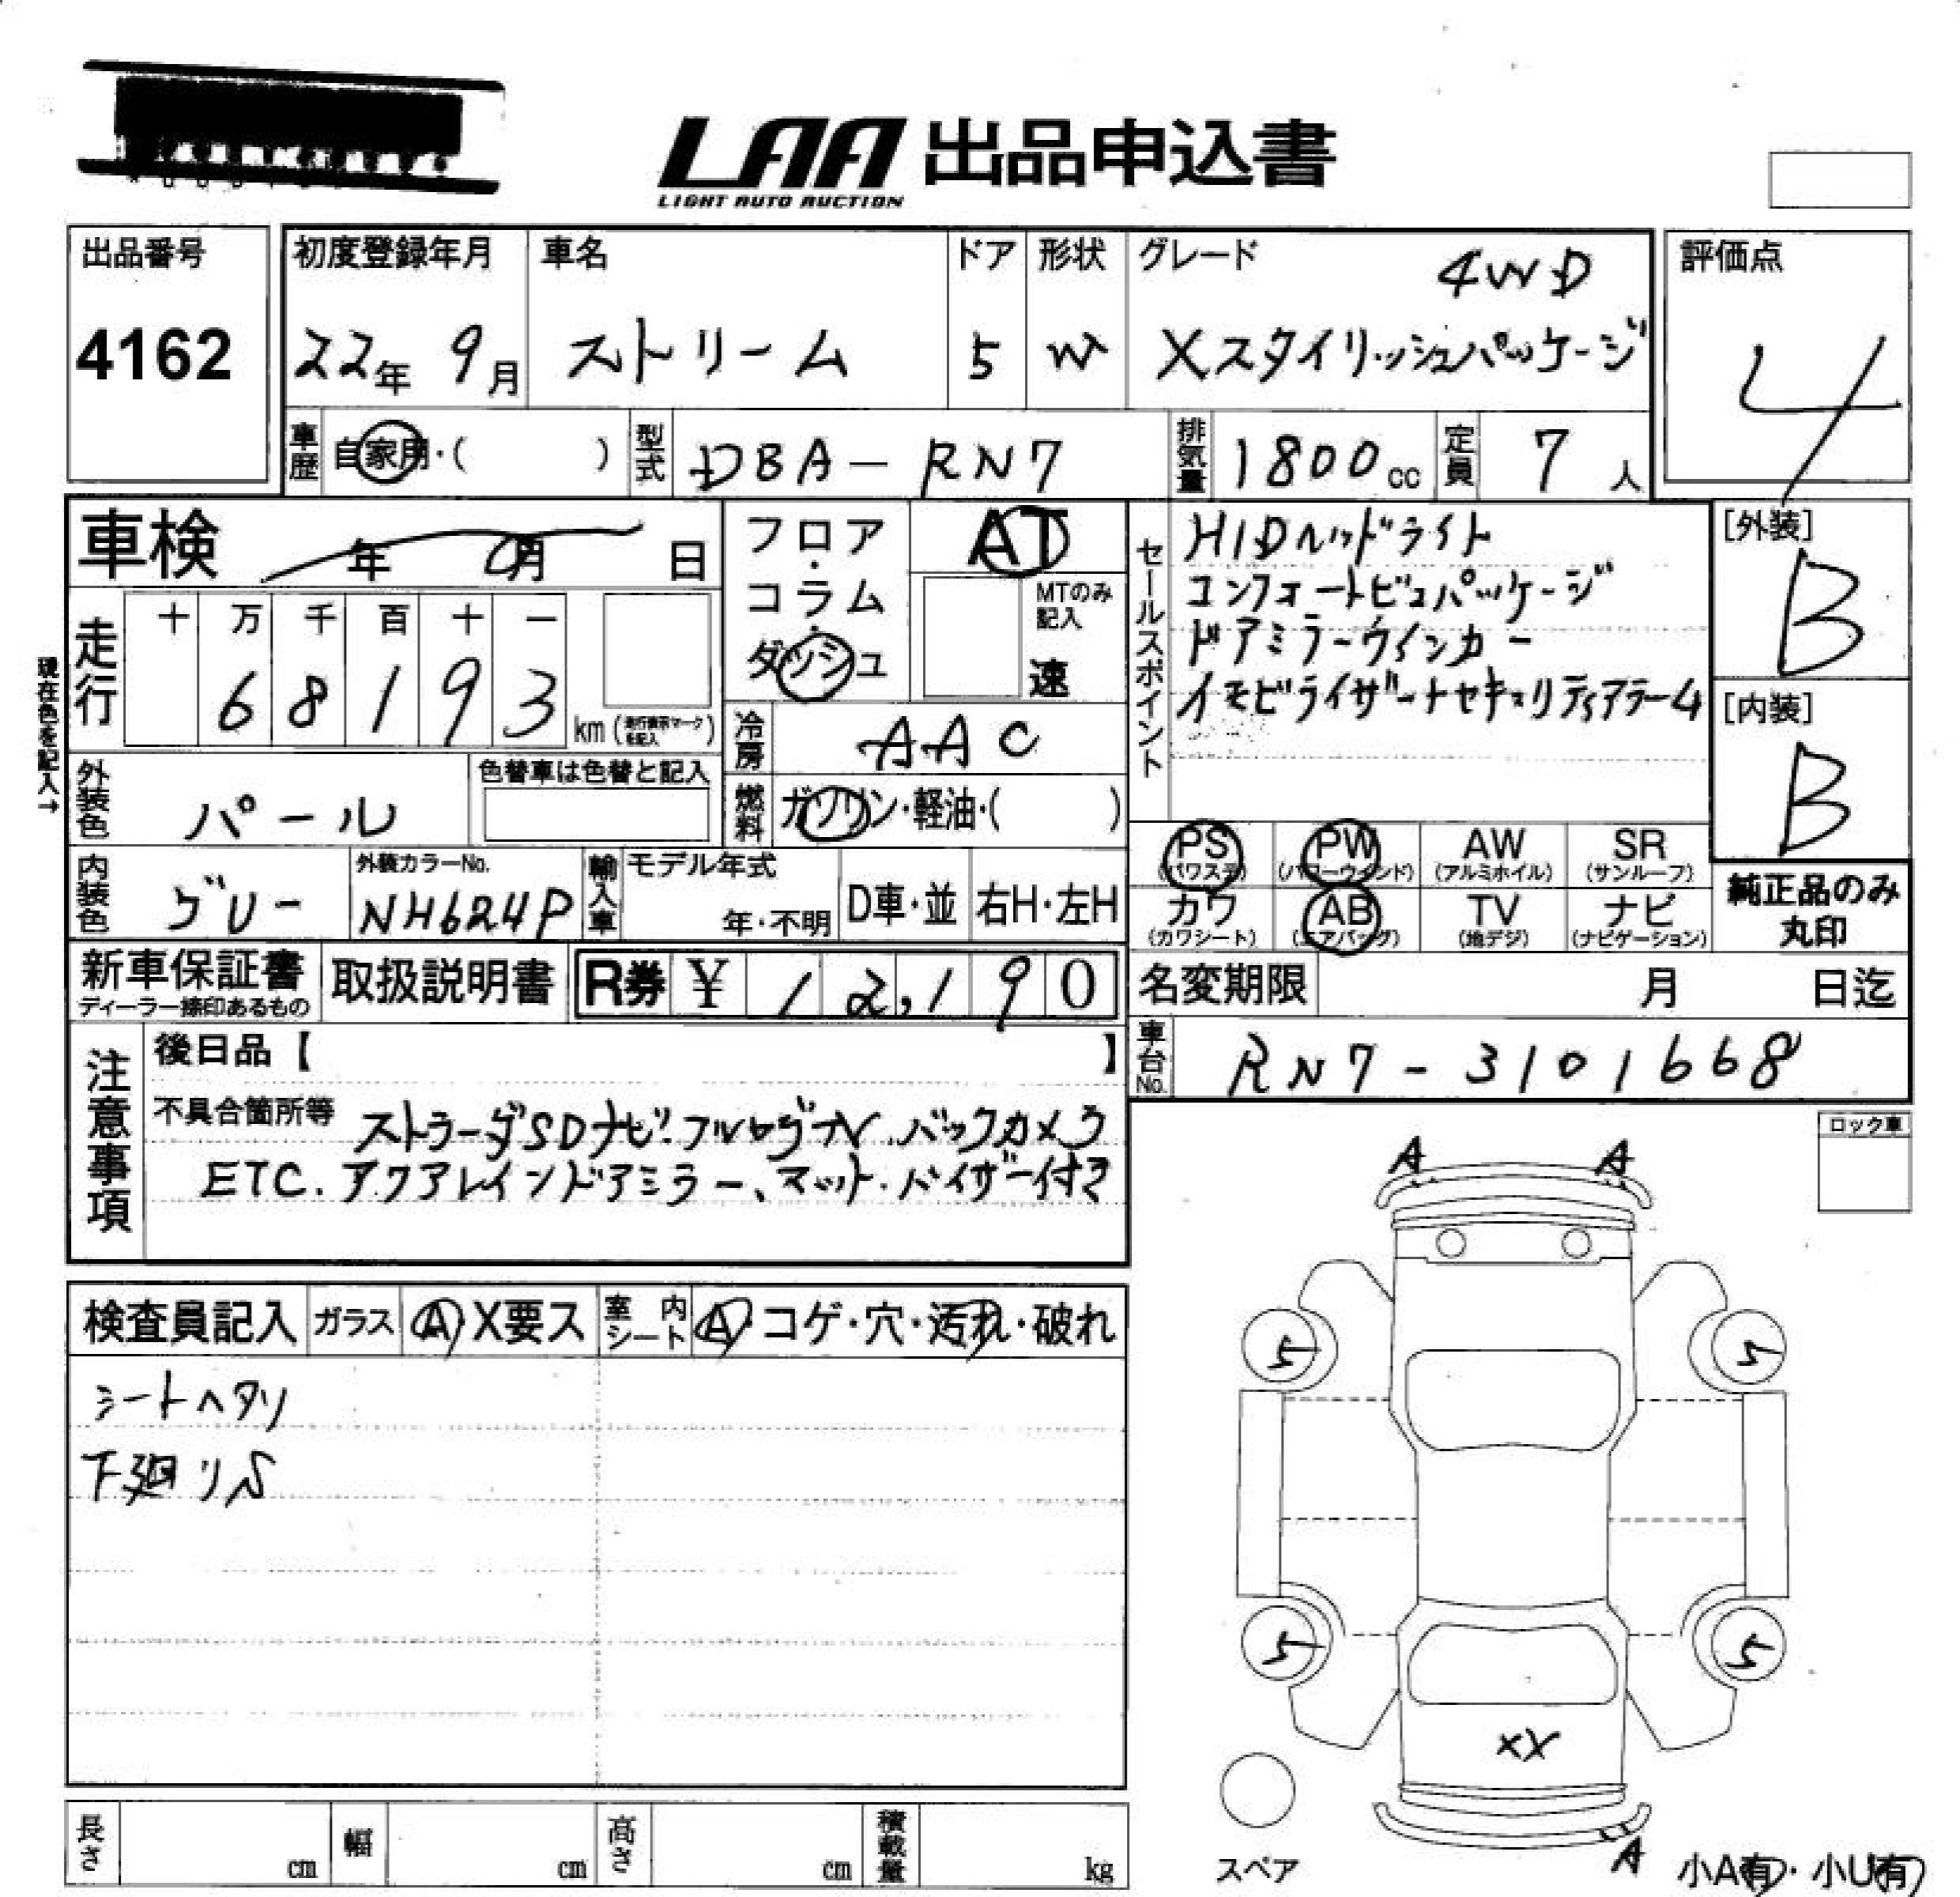 LAA 出品申込書
LIGHT AUTO AUCTION
出品番号
4162
初度登録年月
22年 9月
車名
ストリーム
ドア
5
形状
W
グレード
4WD
Xスタイリッシュパッケージ
評価点
4
車歴 自家用・( )
型式 DBA-RN7
排気量 1800cc
定員 7人
車検 年 月 日
フロア・コラム・ダッシュ
AT
MTのみ記入
速
セールスポイント
HIDヘッドライト
コンフォートビューパッケージ
ドアミラーウインカー
イモビライザーナセキュリティアラーム
[外装]
B
[内装]
B
現在色を記入→
走行
十 万 千 百 十 一
6 8 1 9 3 km (走行表示マークを記入)
冷房 AAC
外装色 パール
色替車は色替と記入
燃料 ガソリン・軽油・( )
内装色 グレー
外装カラーNo.
NH624P
輸入車
モデル年式
年・不明
D車・並
右H・左H
PS (パワステ)
PW (パワーウインド)
AW (アルミホイル)
SR (サンルーフ)
カワ (カワシート)
AB (エアバッグ)
TV (地デジ)
ナビ (ナビゲーション)
純正品のみ
丸印
新車保証書
ディーラー捺印あるもの
取扱説明書
R券 ¥ 12,190
名変期限 月 日迄
車台No. RN7-3101668
注意事項
後日品【 】
不具合箇所等 ストラーダSDナビ.フルセグTV.バックカメラ
ETC.アクアレインドアミラー、マット.バイザー付き
ロック車
A A
検査員記入
ガラス A X要ス
室内シート A・コゲ・穴・汚れ・破れ
シートヘタリ
下廻りS
5 5
5 5
XX
A
スペア
小A(有)・小U(有)
長さ cm
幅 cm
高さ cm
積載量 kg